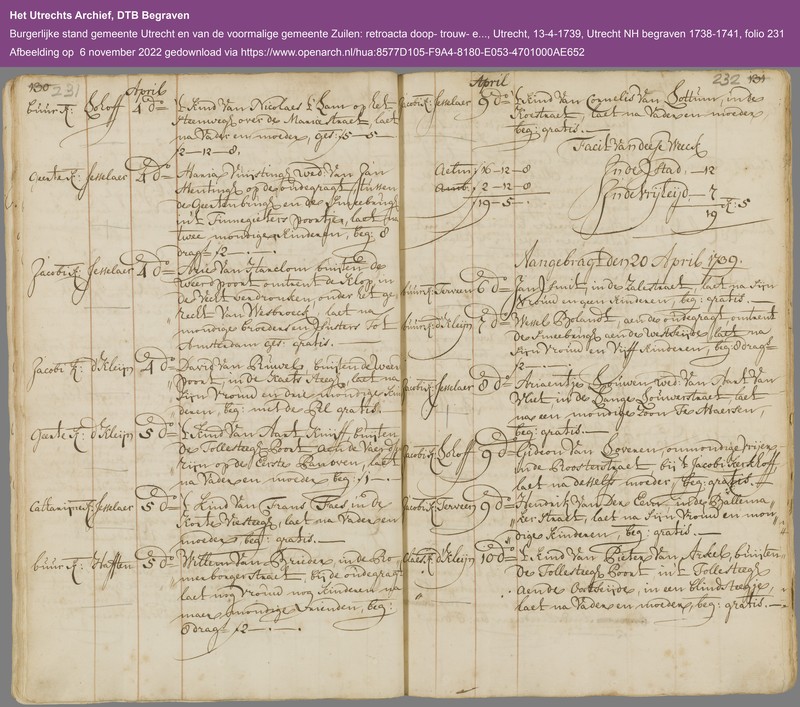 Het Utrechts Archief, DTB Begraven
Burgerlijke stand gemeente Utrecht en van de voormalige gemeente Zuilen: retroacta doop- trouw- e..., Utrecht, 13-4-1739, Utrecht NH begraven 1738-1741, folio 231
Afbeelding op 6 november 2022 gedownload via https://www.openarch.nl/hua:8577D105-F9A4-8180-E053-4701000AE652
130 231
April
buur K: Loloff 4 do
't Kind Van Nicolaes Ham op het
Steenwegh over de Maria Straet, laet
na Vader en moeder, ges: 15-5-
12-12-8,
Geerte K: Jesselaer 4 do
Maria wed: Van Jan
op de oudegragt tussen
de Geertenbrugh en de Smeebrugh
in't Tinnegieters Poortje, laet na
twee mondige Kinderen, beg: 8
drag: 12
Jacobi K: Jesselaer 4 do
Arie Van buiten de
Weerdpoort omtrent de Klop in
de Vecht verdronken onder het ge,
recht Van Westbroeck, laet na
mondige broeders en Susters tot
Amsterdam ges: gratis.
Jacobi K: d'Kleijn 4 do
David Van buiten de weer
Poort, in de Kaets Steegh, laet na
Sijn Vrouw en drie mondige Kin
deren, beg: met de gratis.
Geerte K: d'Kleijn 5 do
't Kind Van Aart Kruijff, buijten
de Tollesteegh Poort aen de Vaerdse
rijn op de Eerste Panoven, laet
na Vader en moeder beg: f1-
Cattarijne K: Jesselaer 5 do
't Kind Van Frans Faes in de
Korte Viesteegh, laet na Vader en
moeder, beg: gratis.
buur K: Haften 5 do
Willem Van Brieder, in de Bo
merborger Straet, bij de oudegragt
laet nog Vrouw nog Kinderen na
maer mondige Vrienden, beg:
8 drag: 12
April
232 131
Jacobi K: Jesselaer 9 do
't Kind Van Cornelis Van Lottum, in de
Koestraet, laet na Vader en moeder
beg: gratis.
Facit Van deese Weeck
Aetm 16-12-8
Amb: 2-12-8
19-5-
In de Stad -12
In de Vrijheijd -7
19 K: 5
Aangebragt den 20 April 1739.
buur K: Terveen 6 do
Jan Smit, in de Zalestraet, laet na Sijn
Vrouw en geen Kinderen, beg: gratis.
buur K: d'Kleijn 7 do
Wessel Bolandt, aen de oudegragt omtrent
de Smeebrugh aen de Westseijde, laet na
Sijn Vrouw en Vijff Kinderen, beg: 8 drag:
12
Jacobi K: Jesselaer 8 do
Ariaentje Bouwen wed: Van Aart Van
Vliet in de Lange Louwerstraet, laet
na een mondige Soon Te Maersen,
beg: gratis.
Jacobi K: Loloff 9 do
Gideon Van Loveren, onmondige vrijer
in de Boosterstraet, bij 't Jacobi Kerkhoff,
laet na deselfs moeder, beg: gratis.
Jacobi K: Terveen 9 do
Hendrik Van Der Eem, in de Ballema
ker Straet, laet na Sijn Vrouw en mon
dige Kinderen, beg: gratis.
Claes K: d'Kleijn 10 do
't Kind Van Pieter Van Arkel, buijten
de Tollesteegh Poort in't Tollesteegh
aen de Oostseijde, in een blind steegje,
laet na Vader en moeder, beg: gratis.